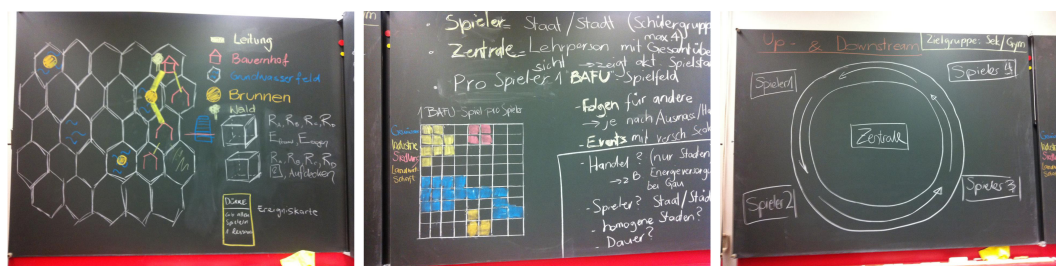 Leitung
Bauernhof
Grundwasserfeld
Brunnen
Wald
Ereigniskarte
Spieler = Staat/Stadt (Schülergruppe
max 4)
Zentrale = Lehrperson mit Gesamtüber
sicht → zeigt akt. Spielsta
Pro Spieler 1 BAFU-Spielfeld
1 BAFU-Spiel pro Spieler
Industrie
Siedlung
Landwirt
schaft
- Folgen für andere
→ je nach Ausmass/
- Events mit versch
- Handel? (nur Staden
→ z B Energieversorgu
bei Gau
- Spieler? Staat/Städ
- homogene Staden?
- Dauer?
Up- & Downstream
Zielgruppe: Sek/Gym
Spieler 1
Spieler 4
Zentrale
Spieler 2
Spieler 3